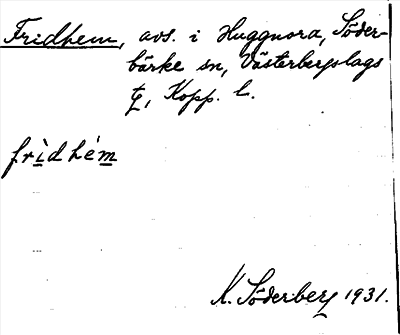 Fridhem, avs. i Huggnora, Söder-
bärke sn, Västerbergslags
tg, Kopp. l.
frìdhém
K. Söderberg 1931.